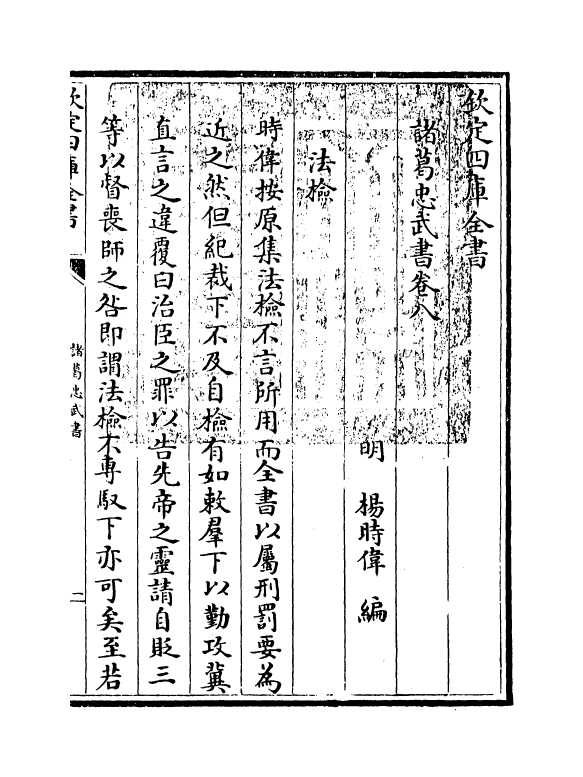 欽定四庫全書
諸葛忠武書卷八
明 楊時偉 編
法檢
時偉按原集法檢不言所用而全書以屬刑罰要為
近之然但紀裁下不及自檢有如敕羣下以勤攻冀
直言之違覆曰治臣之罪以告先帝之靈請自貶三
等以督喪師之咎即謂法檢不專馭下亦可矣至若
欽定四庫全書
諸葛忠武書